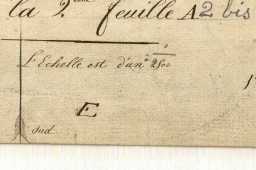 la 2.eme feuille A2 bis
L'Echelle est d'un à 2500
E
Sud